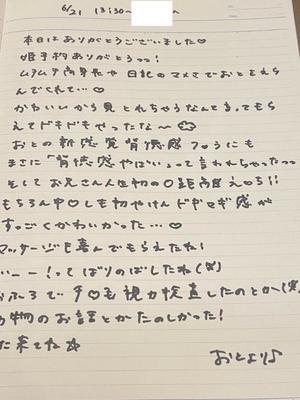 6/21 13:30~
本日はありがとうございました♡
姫予約ありがとうっっ!
ムチムチ高身長や日記のマメさでおとをえら
んでくれて…♡
かわいいから見とれちゃうなんて言ってもら
えてドキドキやったな〜
おとの新感覚背徳感フロうにも
まさに「背徳感やばい」って言われちゃったっっ
そしてお兄さん人生初の0距離えっち!!
もちろん中♡しも初やけんドギマギ感が
すっごくかわいかった…♡
マッサージも喜んでもらえたね!
いーー!ってばりのばしたね(笑)
おふろで♡も視力検査したのとか(笑
物のお話とかたのしかった!
た来てね☆
おとより♪